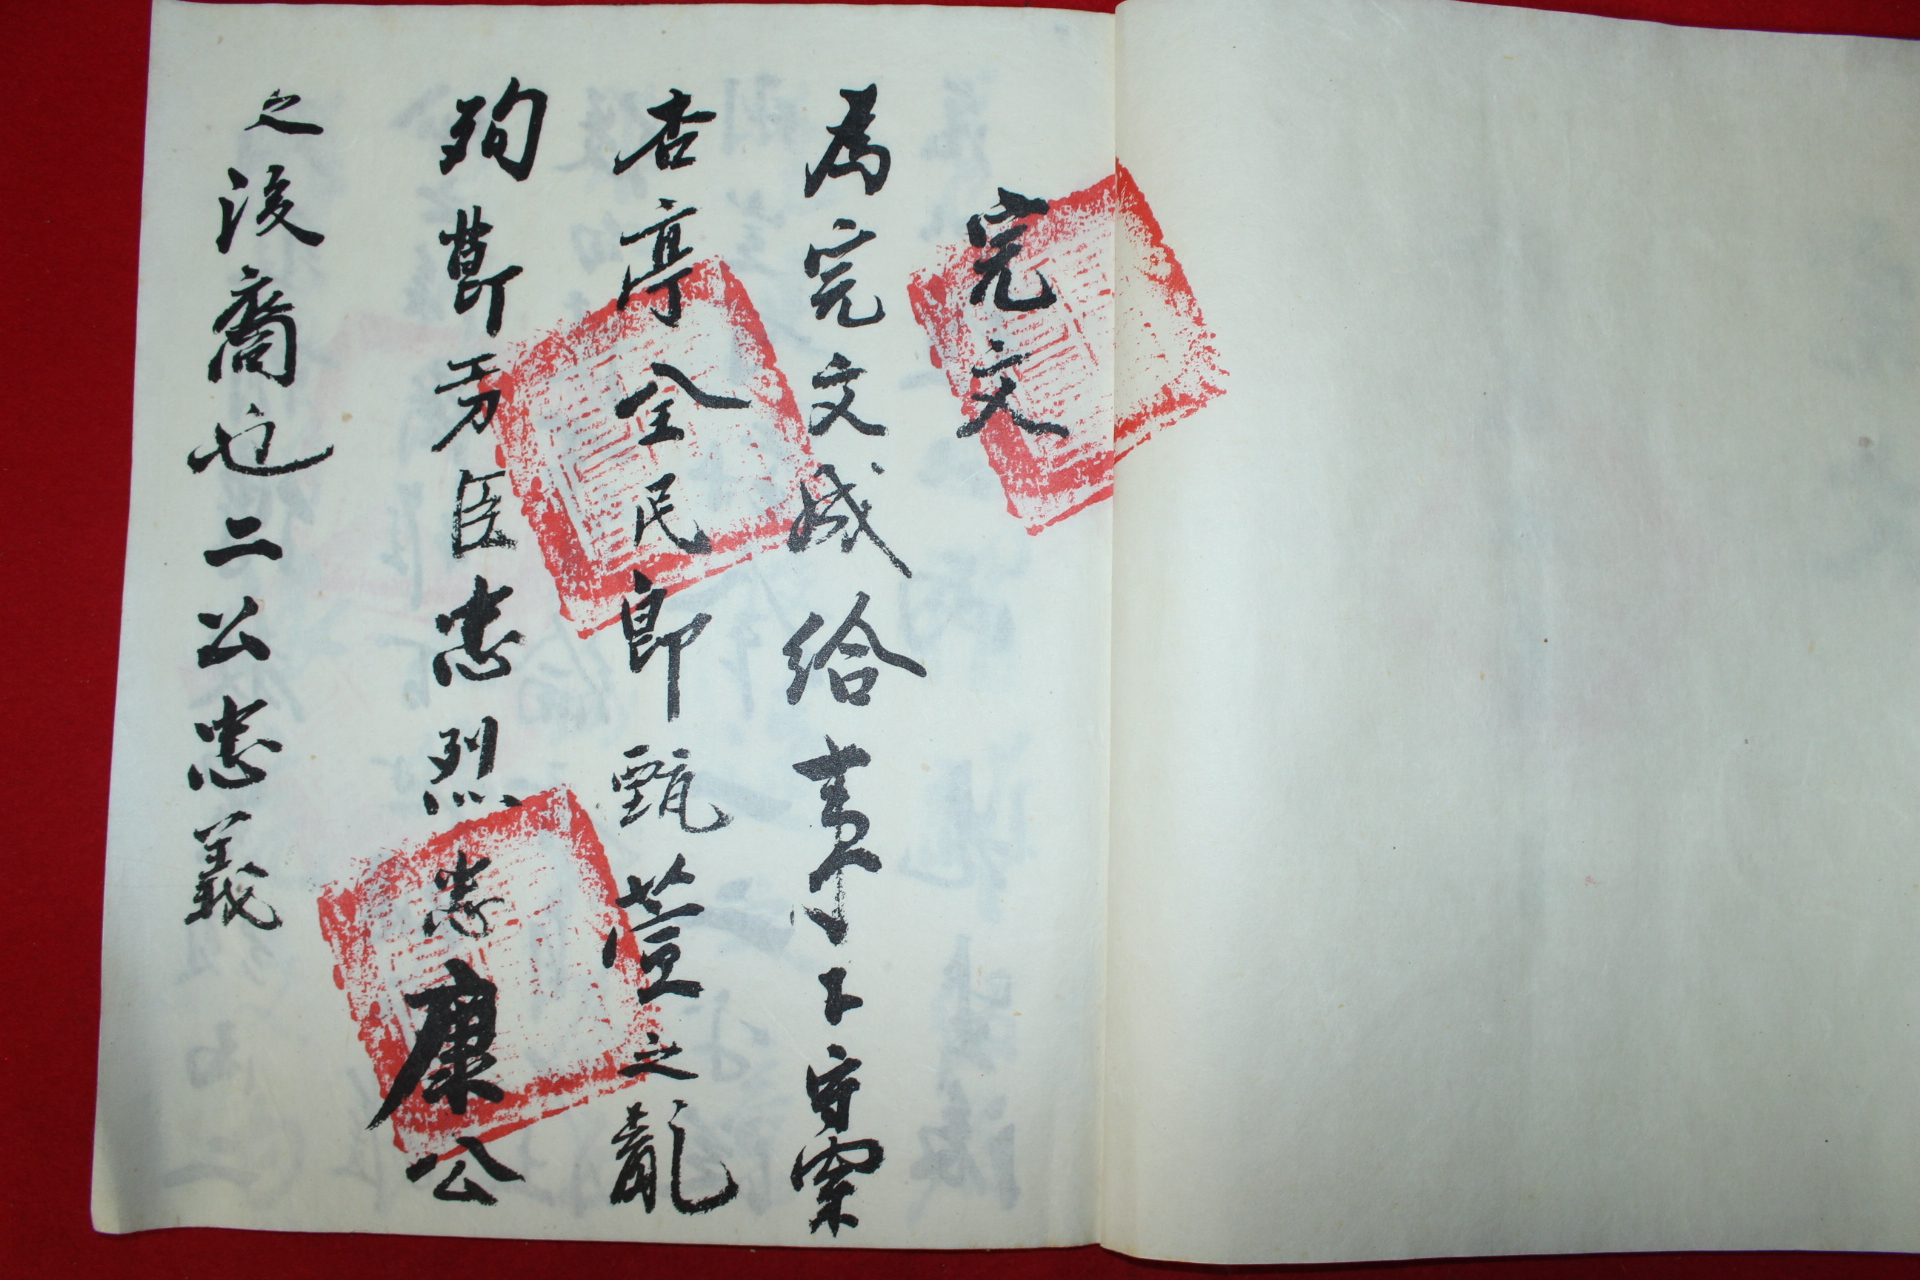 完文
為完文成給事
杏亭全氏即甄萱之亂
殉節功臣忠烈忠康公
之後裔也二公忠義